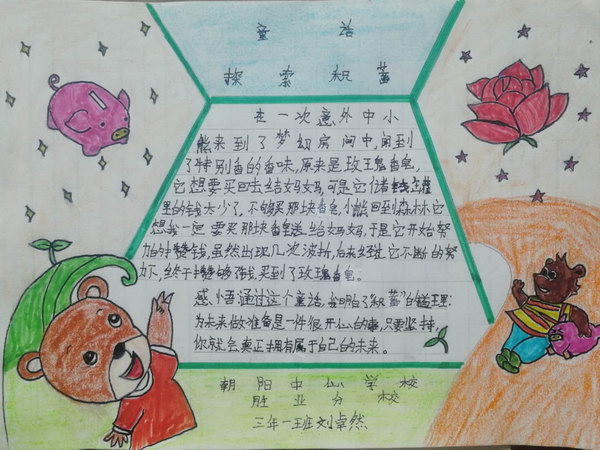 童话
探索积蓄
在一次意外中小
熊来到了梦幻房间中,闻到
了特别香的香味,原来是玫瑰香皂,
它想要买回去给妈妈,可是它储钱罐
里的钱太少了,不够买那块香皂,小熊回到森林它
想我一定要买那块香皂送给妈妈,于是它开始努
力的攒钱,虽然出现几次波折,但未经过它不断的努
力下,终于攒够钱买到了玫瑰香皂。
感悟通过这个童话,我明白了积蓄的道理:
为未来做准备是一件很开心的事,只要坚持,
你就会真正拥有属于自己的未来。
朝阳中山学校
胜业分校
三年一班刘卓然